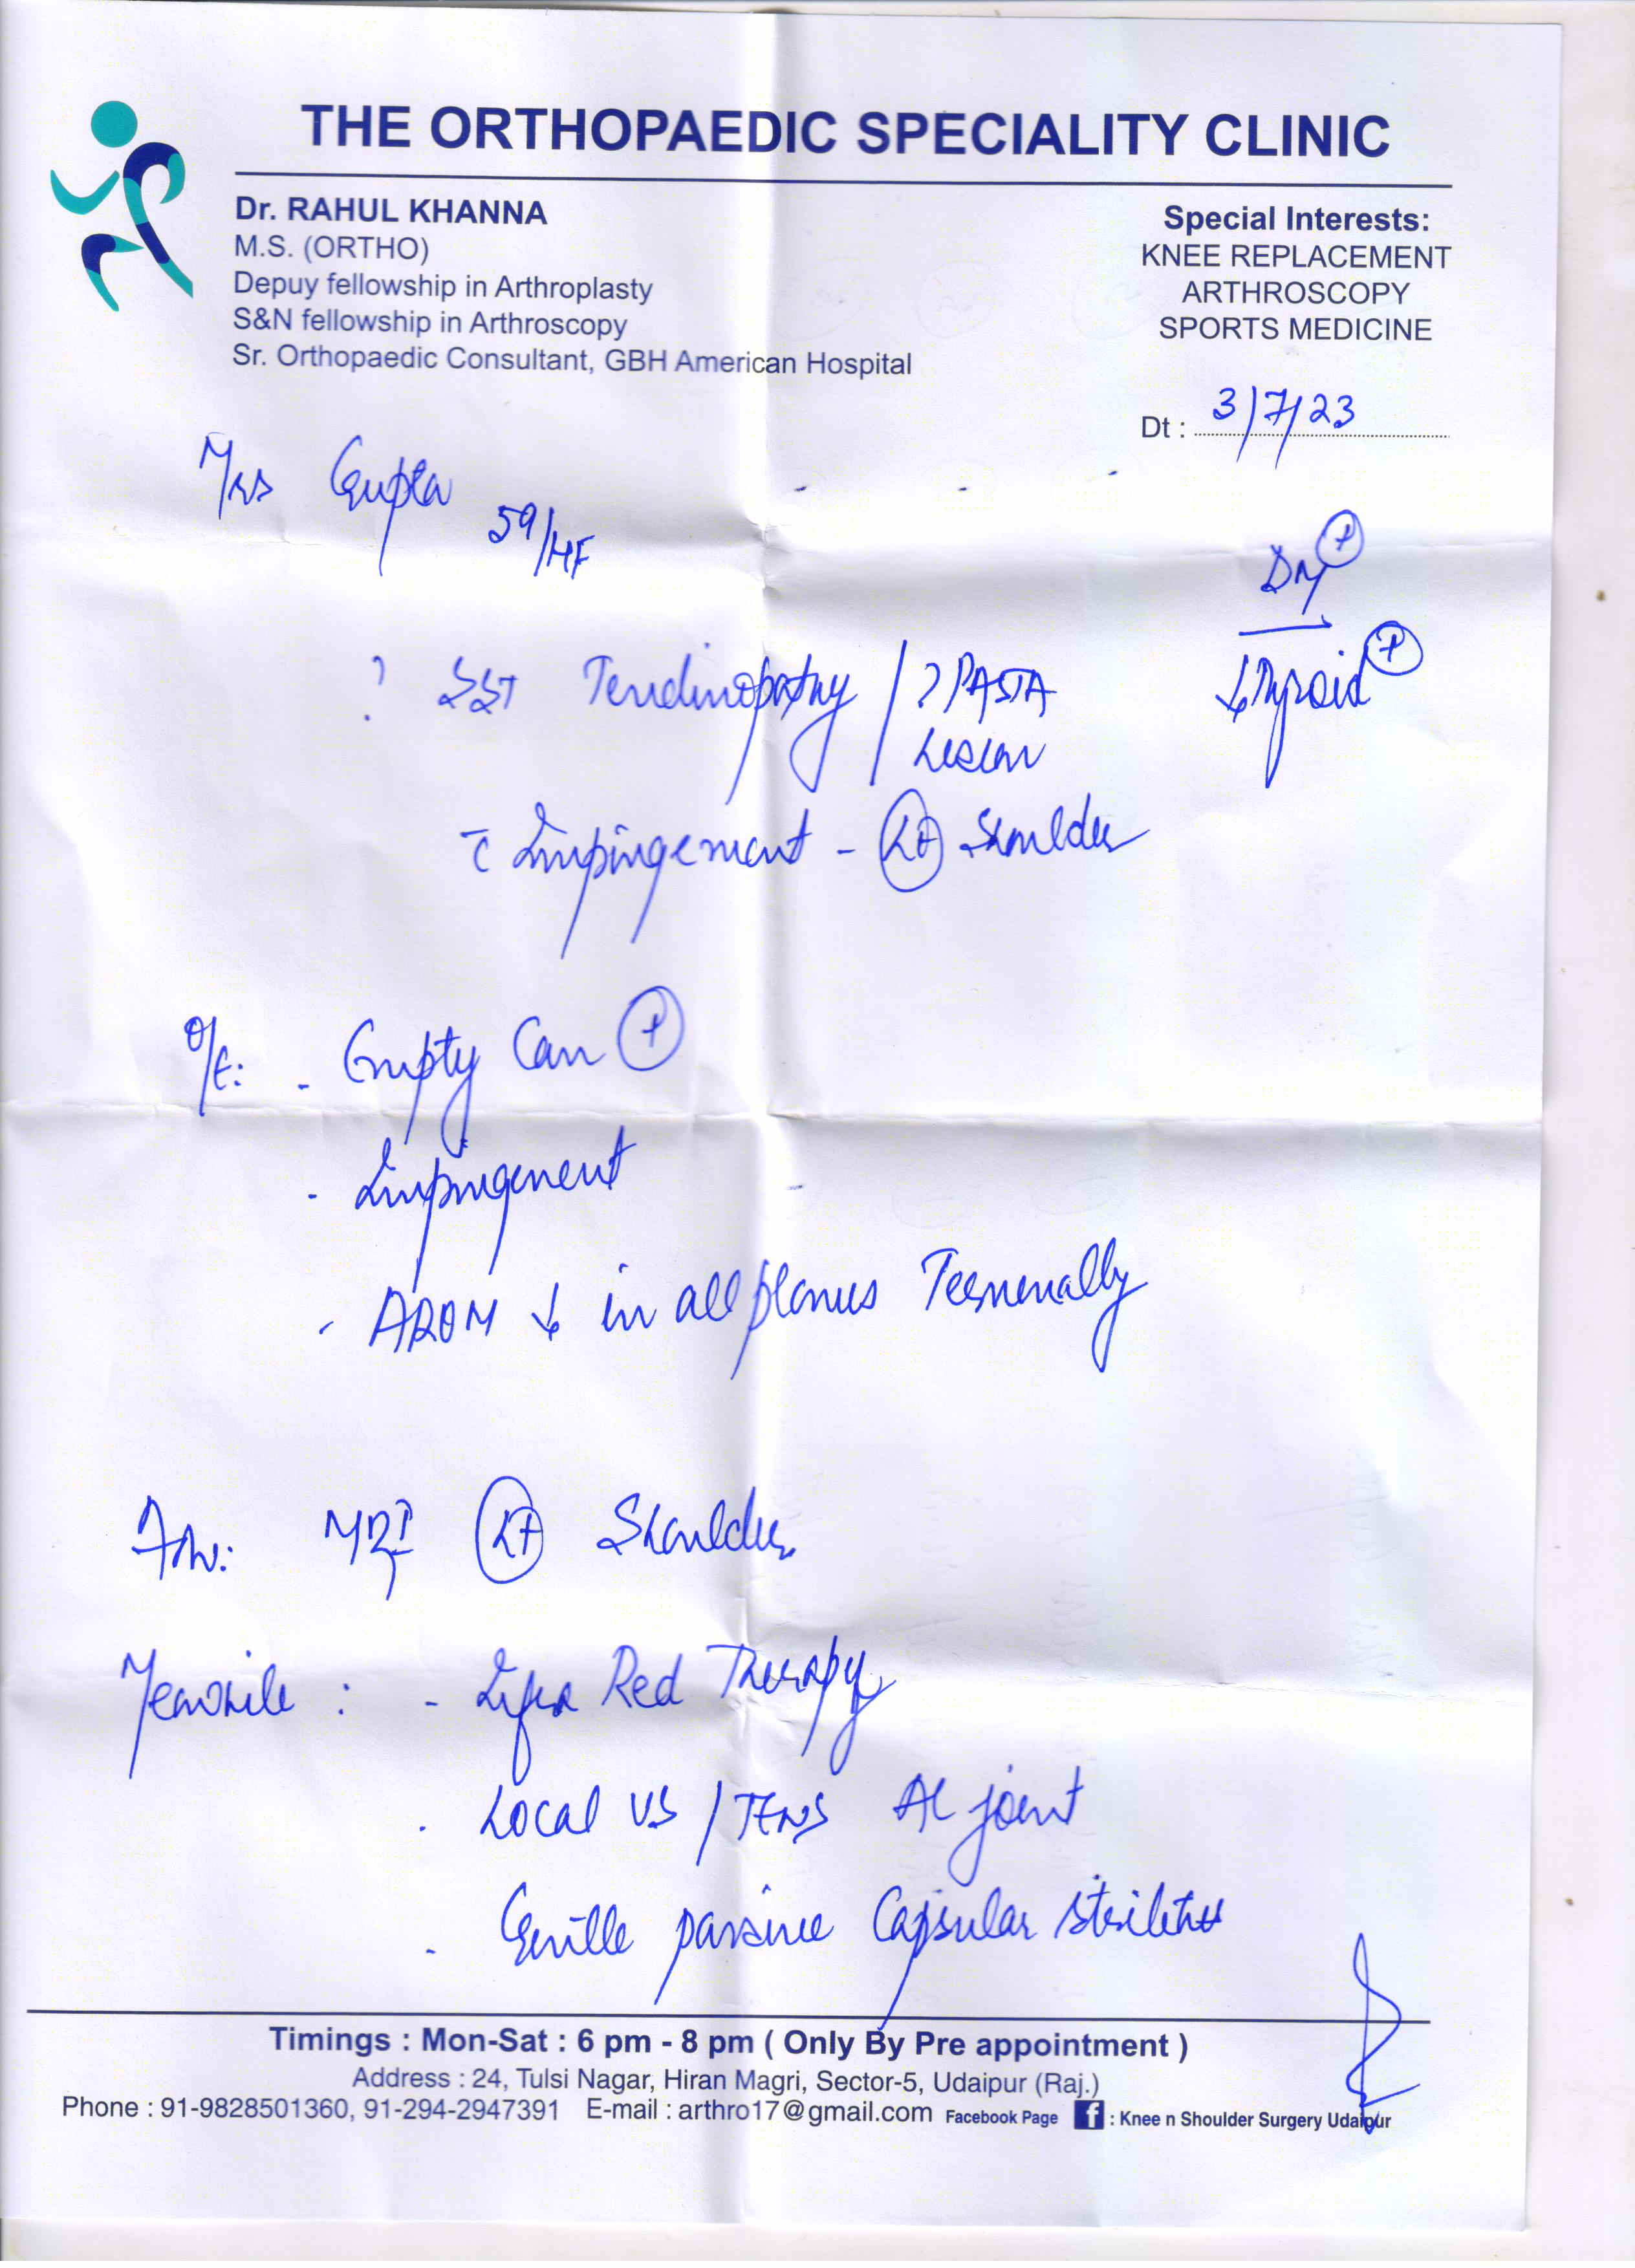 THE ORTHOPAEDIC SPECIALITY CLINIC
Dr. RAHUL KHANNA
M.S. (ORTHO)
Depuy fellowship in Arthroplasty
S&N fellowship in Arthroscopy
Sr. Orthopaedic Consultant, GBH American Hospital
Special Interests:
KNEE REPLACEMENT
ARTHROSCOPY
SPORTS MEDICINE
Dt : 3/7/23
Mrs Gupta 59/
DM +
↓Thyroid +
? SST Tendinopathy / ? PASTA
Lesion
c̄ Impingement - Lt Shoulder
O/E: - Empty Can +
- Impingement
- AROM ↓ in all planes Terminally
Adv: MRI Lt Shoulder
Meanwhile : - Infra Red Therapy
- Local US / TENS AC joint
- Gentle passive Capsular stretches
Timings : Mon-Sat : 6 pm - 8 pm ( Only By Pre appointment )
Address : 24, Tulsi Nagar, Hiran Magri, Sector-5, Udaipur (Raj.)
Phone : 91-9828501360, 91-294-2947391 E-mail : arthro17@gmail.com Facebook Page f : Knee n Shoulder Surgery Udaipur